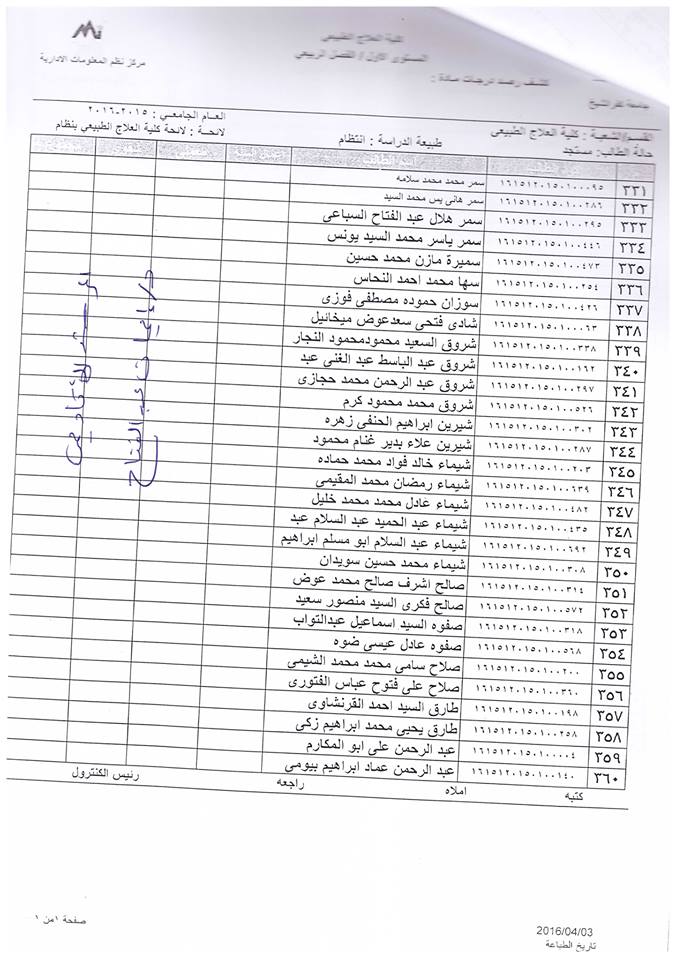 كلية العلاج الطبيعي
المستوى الاول / الفصل الربيعي
كشف رصد درجات مادة :
جامعة كفر الشيخ
مركز نظم المعلومات الادارية
القسم/الشعبة : كلية العلاج الطبيعى
العام الجامعي : ٢٠١٥-٢٠١٦
حالة الطالب: مستجد
طبيعة الدراسة : انتظام
لائحة : لائحة كلية العلاج الطبيعي بنظام
٣٣١ ١٦١٥١٢٠١٥٠١٠٠٠٩٥ سمر محمد محمد سلامه
٣٣٢ ١٦١٥١٢٠١٥٠١٠٠٢٨٦ سمر هانى يس محمد السيد
٣٣٣ ١٦١٥١٢٠١٥٠١٠٠٢٩٥ سمر هلال عبد الفتاح السباعى
٣٣٤ ١٦١٥١٢٠١٥٠١٠٠٤٤٦ سمر ياسر محمد السيد يونس
٣٣٥ ١٦١٥١٢٠١٥٠١٠٠٤٧٣ سميرة مازن محمد حسين
٣٣٦ ١٦١٥١٢٠١٥٠١٠٠٢٥٤ سها محمد احمد النحاس
٣٣٧ ١٦١٥١٢٠١٥٠١٠٠٤٢٦ سوزان حموده مصطفى فوزى
٣٣٨ ١٦١٥١٢٠١٥٠١٠٠٠٦٣ شادى فتحى سعدعوض ميخائيل
٣٣٩ ١٦١٥١٢٠١٥٠١٠٠٣٣٨ شروق السعيد محمودمحمود النجار
٣٤٠ ١٦١٥١٢٠١٥٠١٠٠١٦٢ شروق عبد الباسط عبد الغنى عبد
٣٤١ ١٦١٥١٢٠١٥٠١٠٠٢٩٧ شروق عبد الرحمن محمد حجازى
٣٤٢ ١٦١٥١٢٠١٥٠١٠٠٥٢٦ شروق محمد محمود كرم
٣٤٣ ١٦١٥١٢٠١٥٠١٠٠٣٠٢ شيرين ابراهيم الحنفى زهره
٣٤٤ ١٦١٥١٢٠١٥٠١٠٠٢٨٧ شيرين علاء بدير غنام محمود
٣٤٥ ١٦١٥١٢٠١٥٠١٠٠٢٠٣ شيماء خالد فواد محمد حماده
٣٤٦ ١٦١٥١٢٠١٥٠١٠٠٦٣٩ شيماء رمضان محمد المقيمى
٣٤٧ ١٦١٥١٢٠١٥٠١٠٠٤٨٢ شيماء عادل محمد محمد خليل
٣٤٨ ١٦١٥١٢٠١٥٠١٠٠٤٣٥ شيماء عبد الحميد عبد السلام عبد
٣٤٩ ١٦١٥١٢٠١٥٠١٠٠٦٩٢ شيماء عبد السلام ابو مسلم ابراهيم
٣٥٠ ١٦١٥١٢٠١٥٠١٠٠٣٠٨ شيماء محمد حسين سويدان
٣٥١ ١٦١٥١٢٠١٥٠١٠٠٣١٤ صالح اشرف صالح محمد عوض
٣٥٢ ١٦١٥١٢٠١٥٠١٠٠٥٧٢ صالح فكرى السيد منصور سعيد
٣٥٣ ١٦١٥١٢٠١٥٠١٠٠٣١٨ صفوه السيد اسماعيل عبدالتواب
٣٥٤ ١٦١٥١٢٠١٥٠١٠٠٥٦٨ صفوه عادل عيسى ضوه
٣٥٥ ١٦١٥١٢٠١٥٠١٠٠٢٠٠ صلاح سامى محمد محمد الشيمى
٣٥٦ ١٦١٥١٢٠١٥٠١٠٠٣٦٠ صلاح على فتوح عباس الفتورى
٣٥٧ ١٦١٥١٢٠١٥٠١٠٠١٩٨ طارق السيد احمد القرنشاوى
٣٥٨ ١٦١٥١٢٠١٥٠١٠٠٢٥٨ طارق يحيى محمد ابراهيم زكى
٣٥٩ ١٦١٥١٢٠١٥٠١٠٠٠٠٤ عبد الرحمن على ابو المكارم
٣٦٠ ١٦١٥١٢٠١٥٠١٠٠١٤٠ عبد الرحمن عماد ابراهيم بيومى
كتبه املاه راجعه رئيس الكنترول
عبد الفتاح
2016/04/03
تاريخ الطباعة
صفحة ١من ١